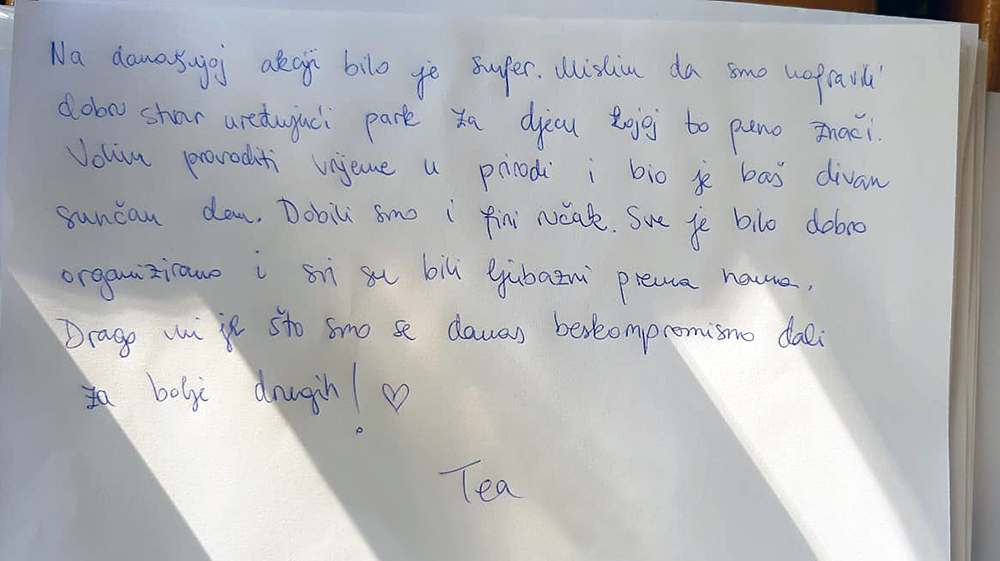 Na današnjoj akciji bilo je super. Mislim da smo napravili
dobru stvar uređujući park za djecu kojoj to puno znači.
Volim provoditi vrijeme u prirodi i bio je baš divan
sunčan dan. Dobili smo i fini ručak. Sve je bilo dobro
organizirano i svi su bili ljubazni prema nama.
Drago mi je što smo se danas beskompromisno dali
za bolje drugih! ♡
Tea